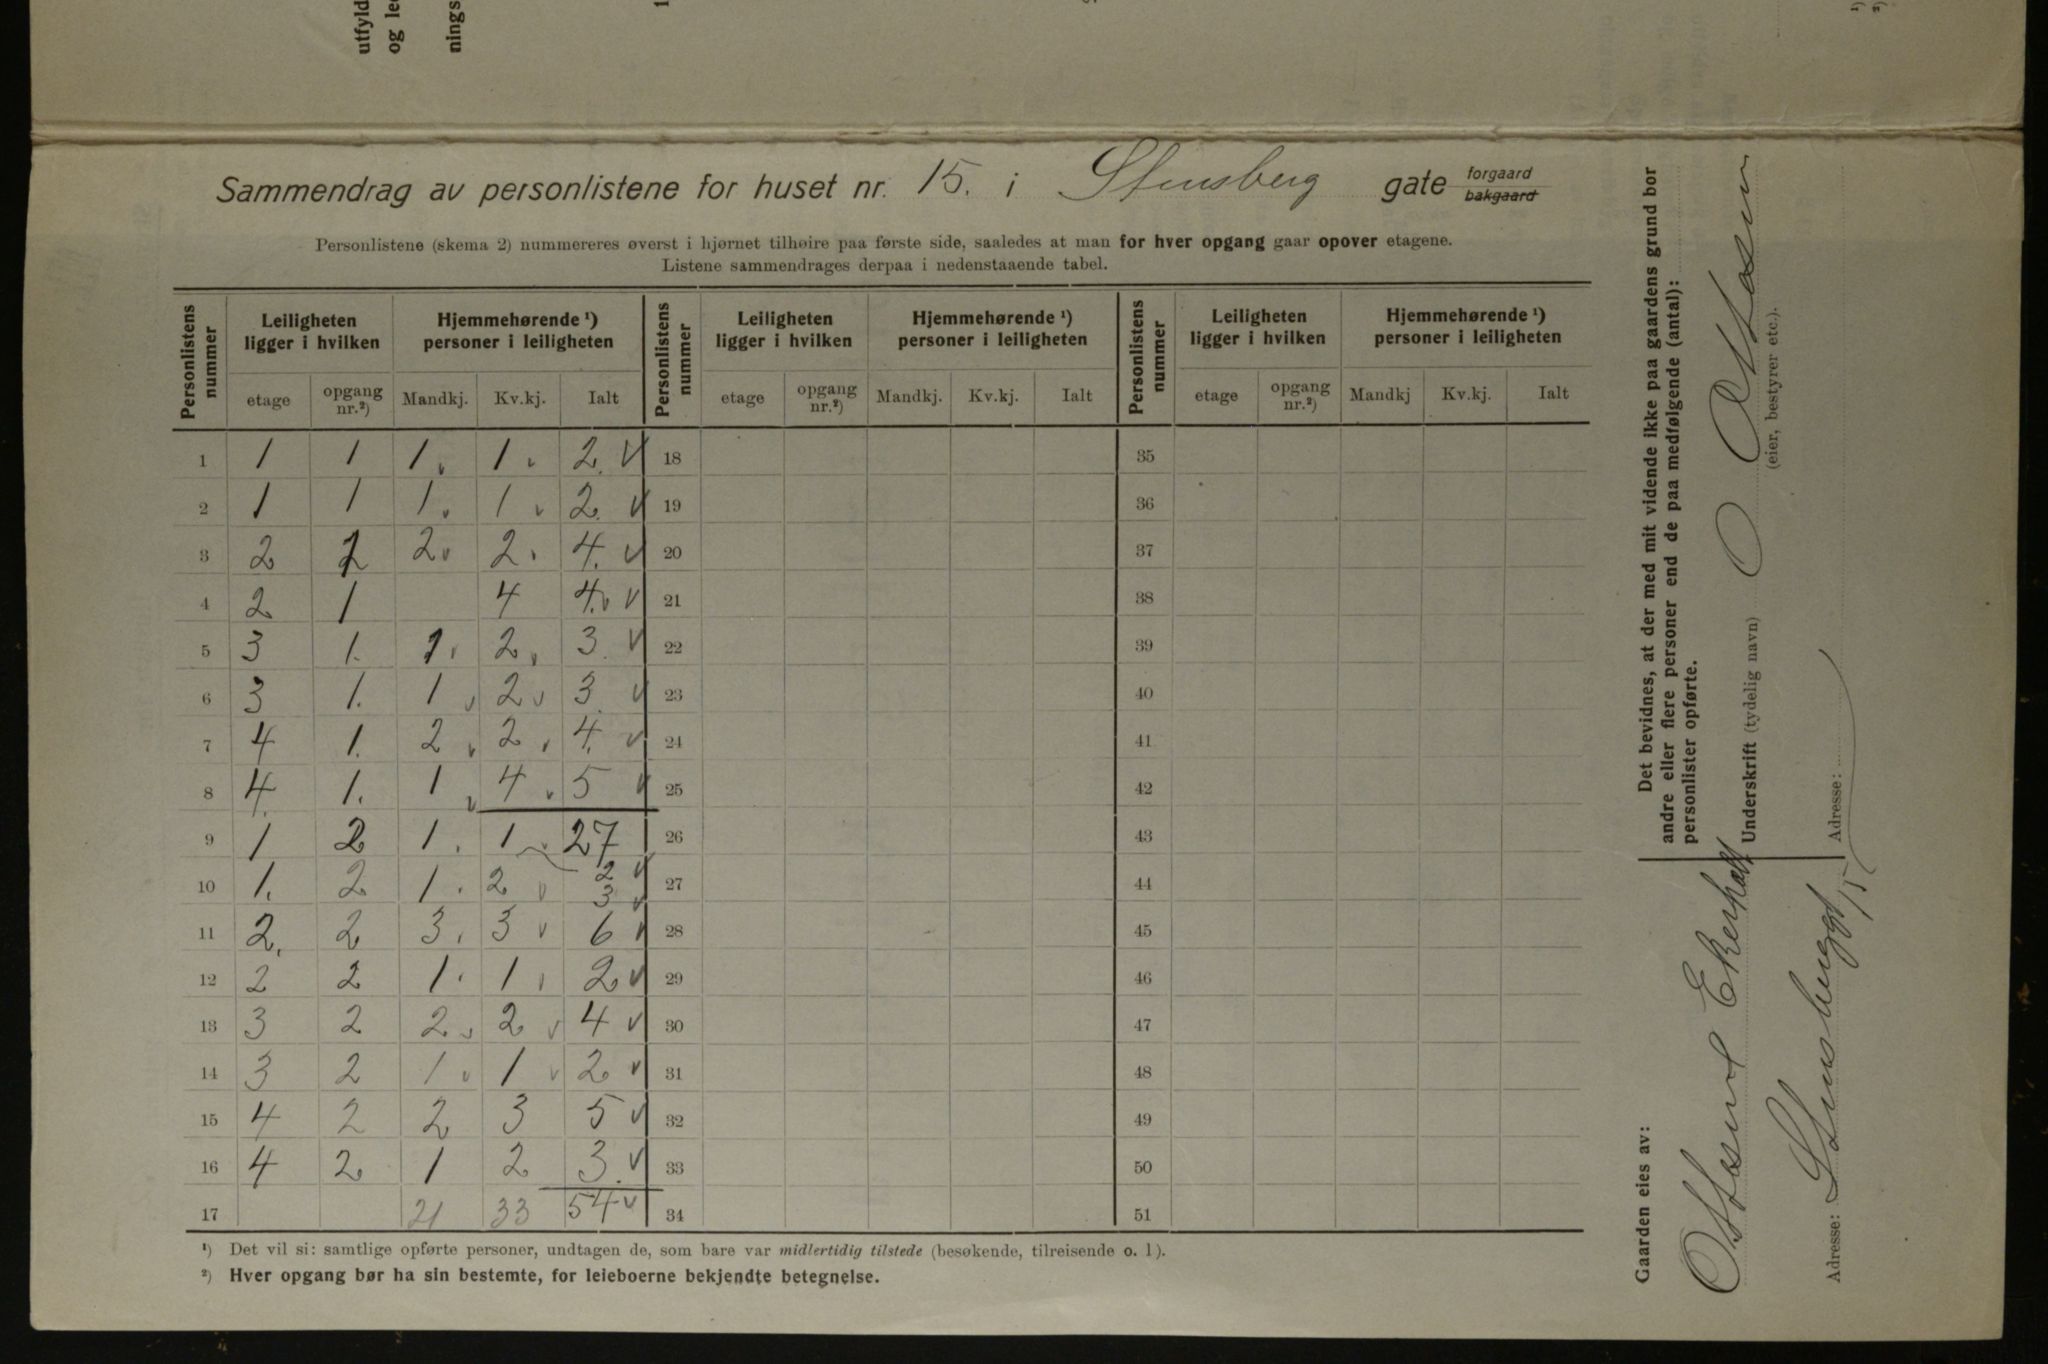 utfyld
og le
nings
Sammendrag av personlistene for huset nr. 15. i Stensberg gate forgaard bakgaard
Personlistene (skema 2) nummereres øverst i hjørnet tilhøire paa første side, saaledes at man for hver opgang gaar opover etagene.
Listene sammendrages derpaa i nedenstaaende tabel.
Personlistens nummer | Leiligheten ligger i hvilken | Hjemmehørende ¹) personer i leiligheten | Personlistens nummer | Leiligheten ligger i hvilken | Hjemmehørende ¹) personer i leiligheten | Personlistens nummer | Leiligheten ligger i hvilken | Hjemmehørende ¹) personer i leiligheten
etage | opgang nr.²) | Mandkj. | Kv.kj. | Ialt | etage | opgang nr.²) | Mandkj. | Kv.kj. | Ialt | etage | opgang nr.²) | Mandkj | Kv.kj. | Ialt
1 1 1 1. 1. 2. v 18 35
2 1 1 1. 1 2. v 19 36
3 2 1 2 2. 4. v 20 37
4 2 1 4 4. v 21 38
5 3 1. 1. 2. 3 v 22 39
6 3 1. 1 2 3 v 23 40
7 4 1. 2 2 4. v 24 41
8 4. 1. 1 4 5 v 25 42
9 1 2 1. 1 27 26 43
2 v
10 1. 2 1. 2 3 v 27 44
11 2. 2 3. 3 6 v 28 45
12 2 2 1. 1 2 v 29 46
13 3 2 2 2 4 v 30 47
14 3 2 1 1 2 v 31 48
15 4 2 2 3 5 v 32 49
16 4 2 1 2 3. v 33 50
17 21 33 54 v 34 51
¹) Det vil si: samtlige opførte personer, undtagen de, som bare var midlertidig tilstede (besøkende, tilreisende o. l).
²) Hver opgang bør ha sin bestemte, for leieboerne bekjendte betegnelse.
Det bevidnes, at der med mit vidende ikke paa gaardens grund bor
andre eller flere personer end de paa medfølgende (antal):
personlister opførte.
Underskrift (tydelig navn) O Ottosen
(eier, bestyrer etc.).
Adresse:
Gaarden eies av:
Ottosen
Adresse: Stensberggt 15
¹)
²)